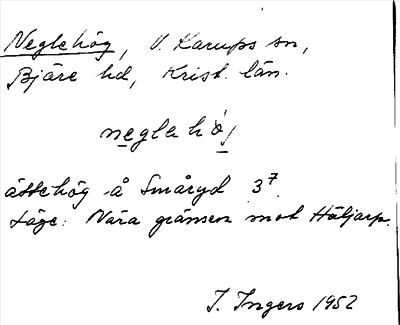 Neglehög, V. Karups sn,
Bjäre hd, Krist. län.
neglahöj
ättehög å Småryd 3⁷.
Läge: Nära gränsen mot Häljarp.
I. Ingers 1952